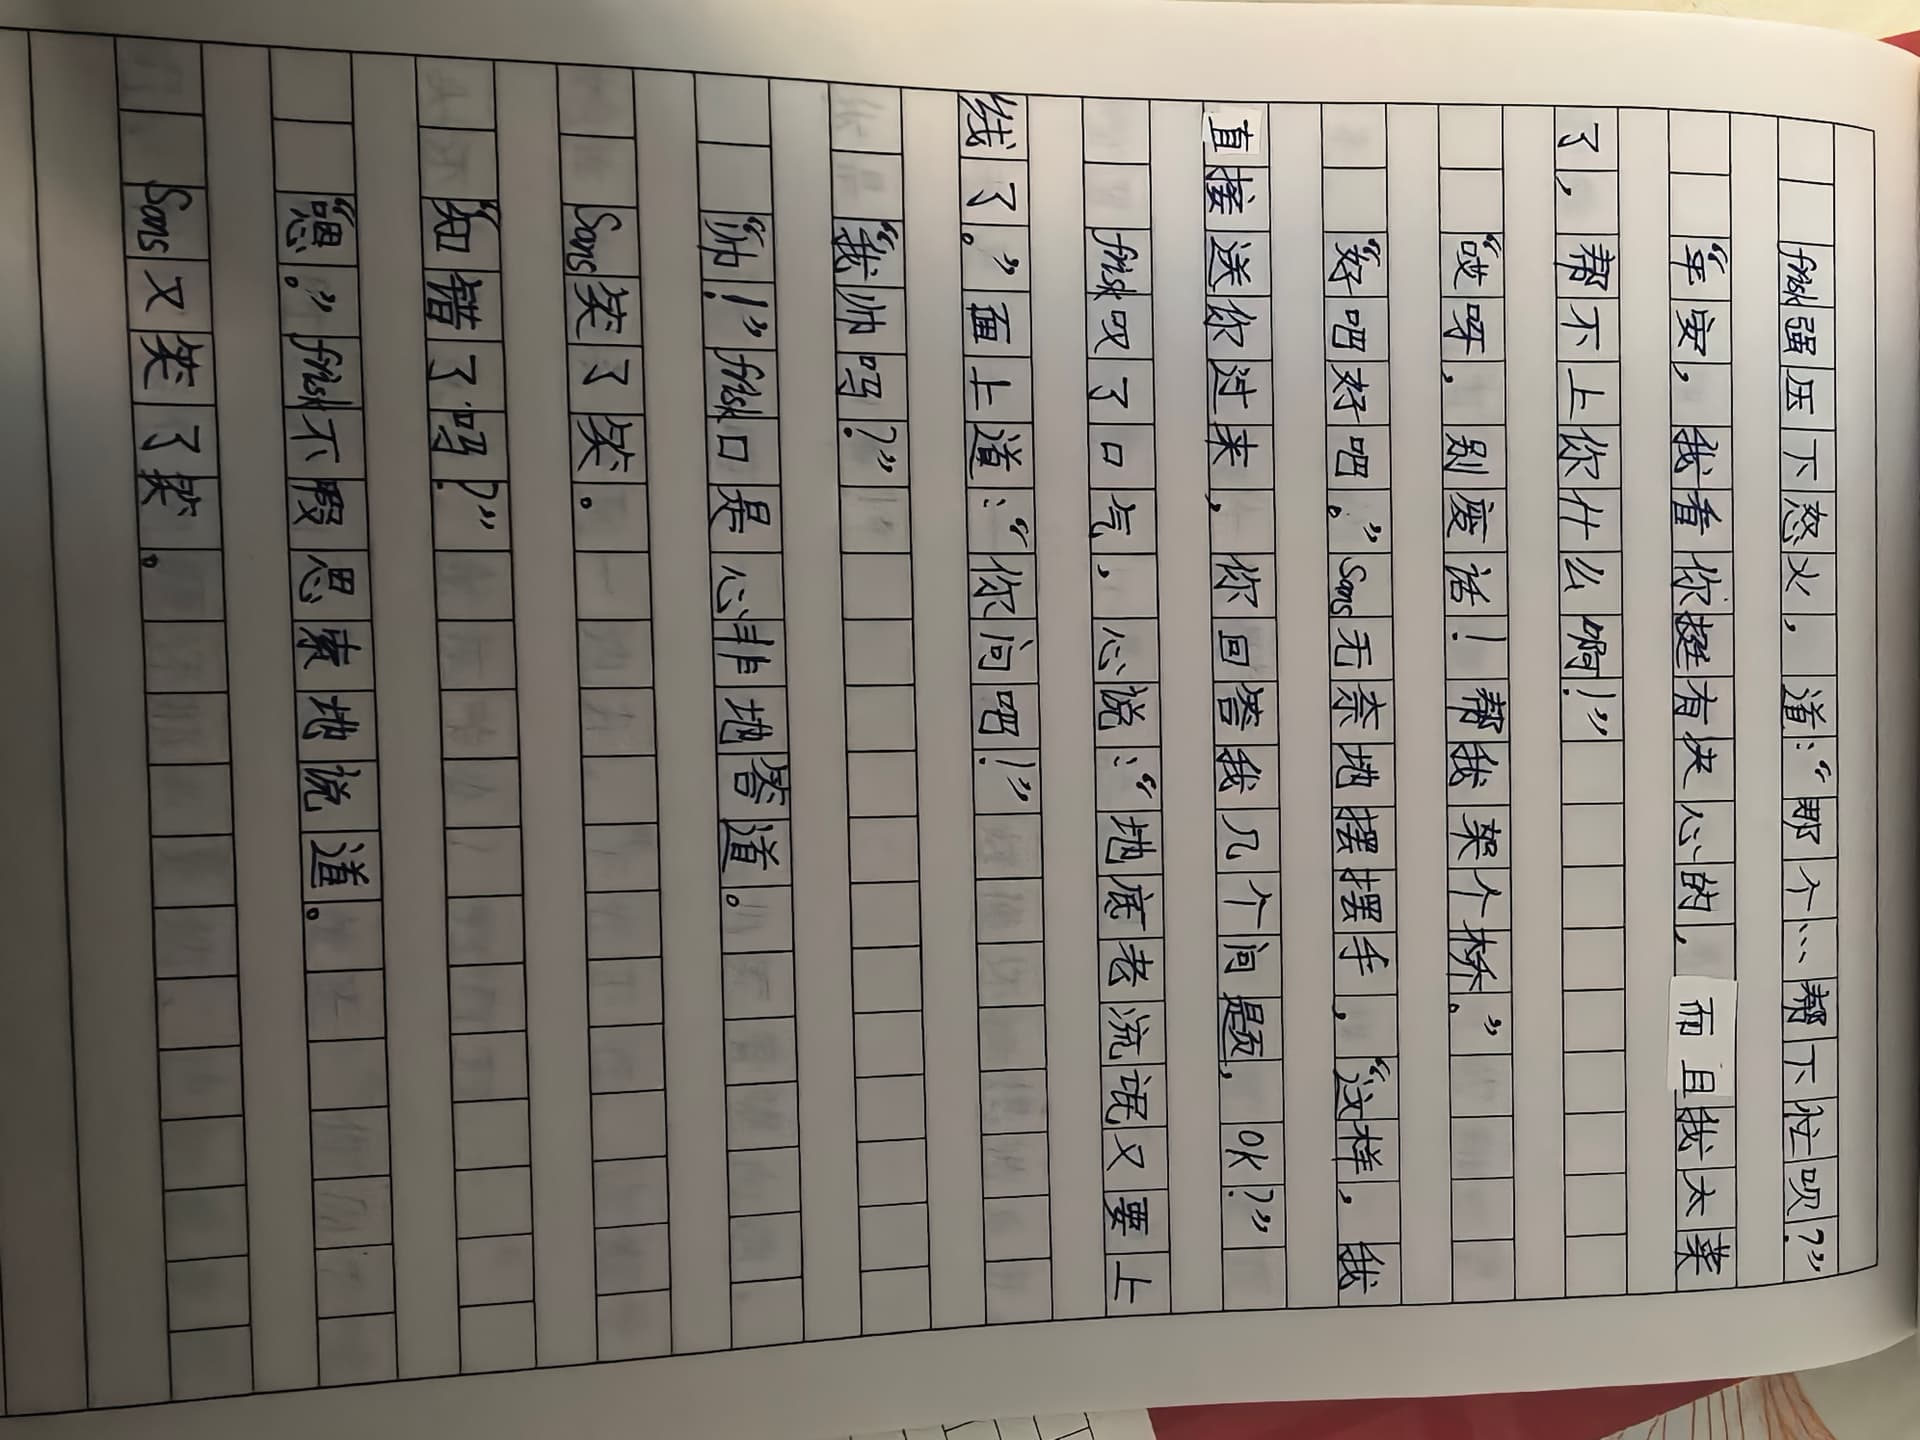 frisk强压下怒火，道：“那个…帮下忙呗？”
“平安，我看你挺有决心的，而且我太菜
了，帮不上你什么啊！”
“哎呀，别废话！帮我架个桥。”
“好吧好吧。”Sans无奈地摆摆手，“这样，我
直接送你过来，你回答我几个问题，OK？”
frisk叹了口气，心说：“地底老流氓又要上
线了。”面上道：“你问吧！”
“我帅吗？”
“帅！”frisk口是心非地答道。
Sans笑了笑。
“知错了吗？”
“嗯。”frisk不假思索地说道。
Sans又笑了笑。